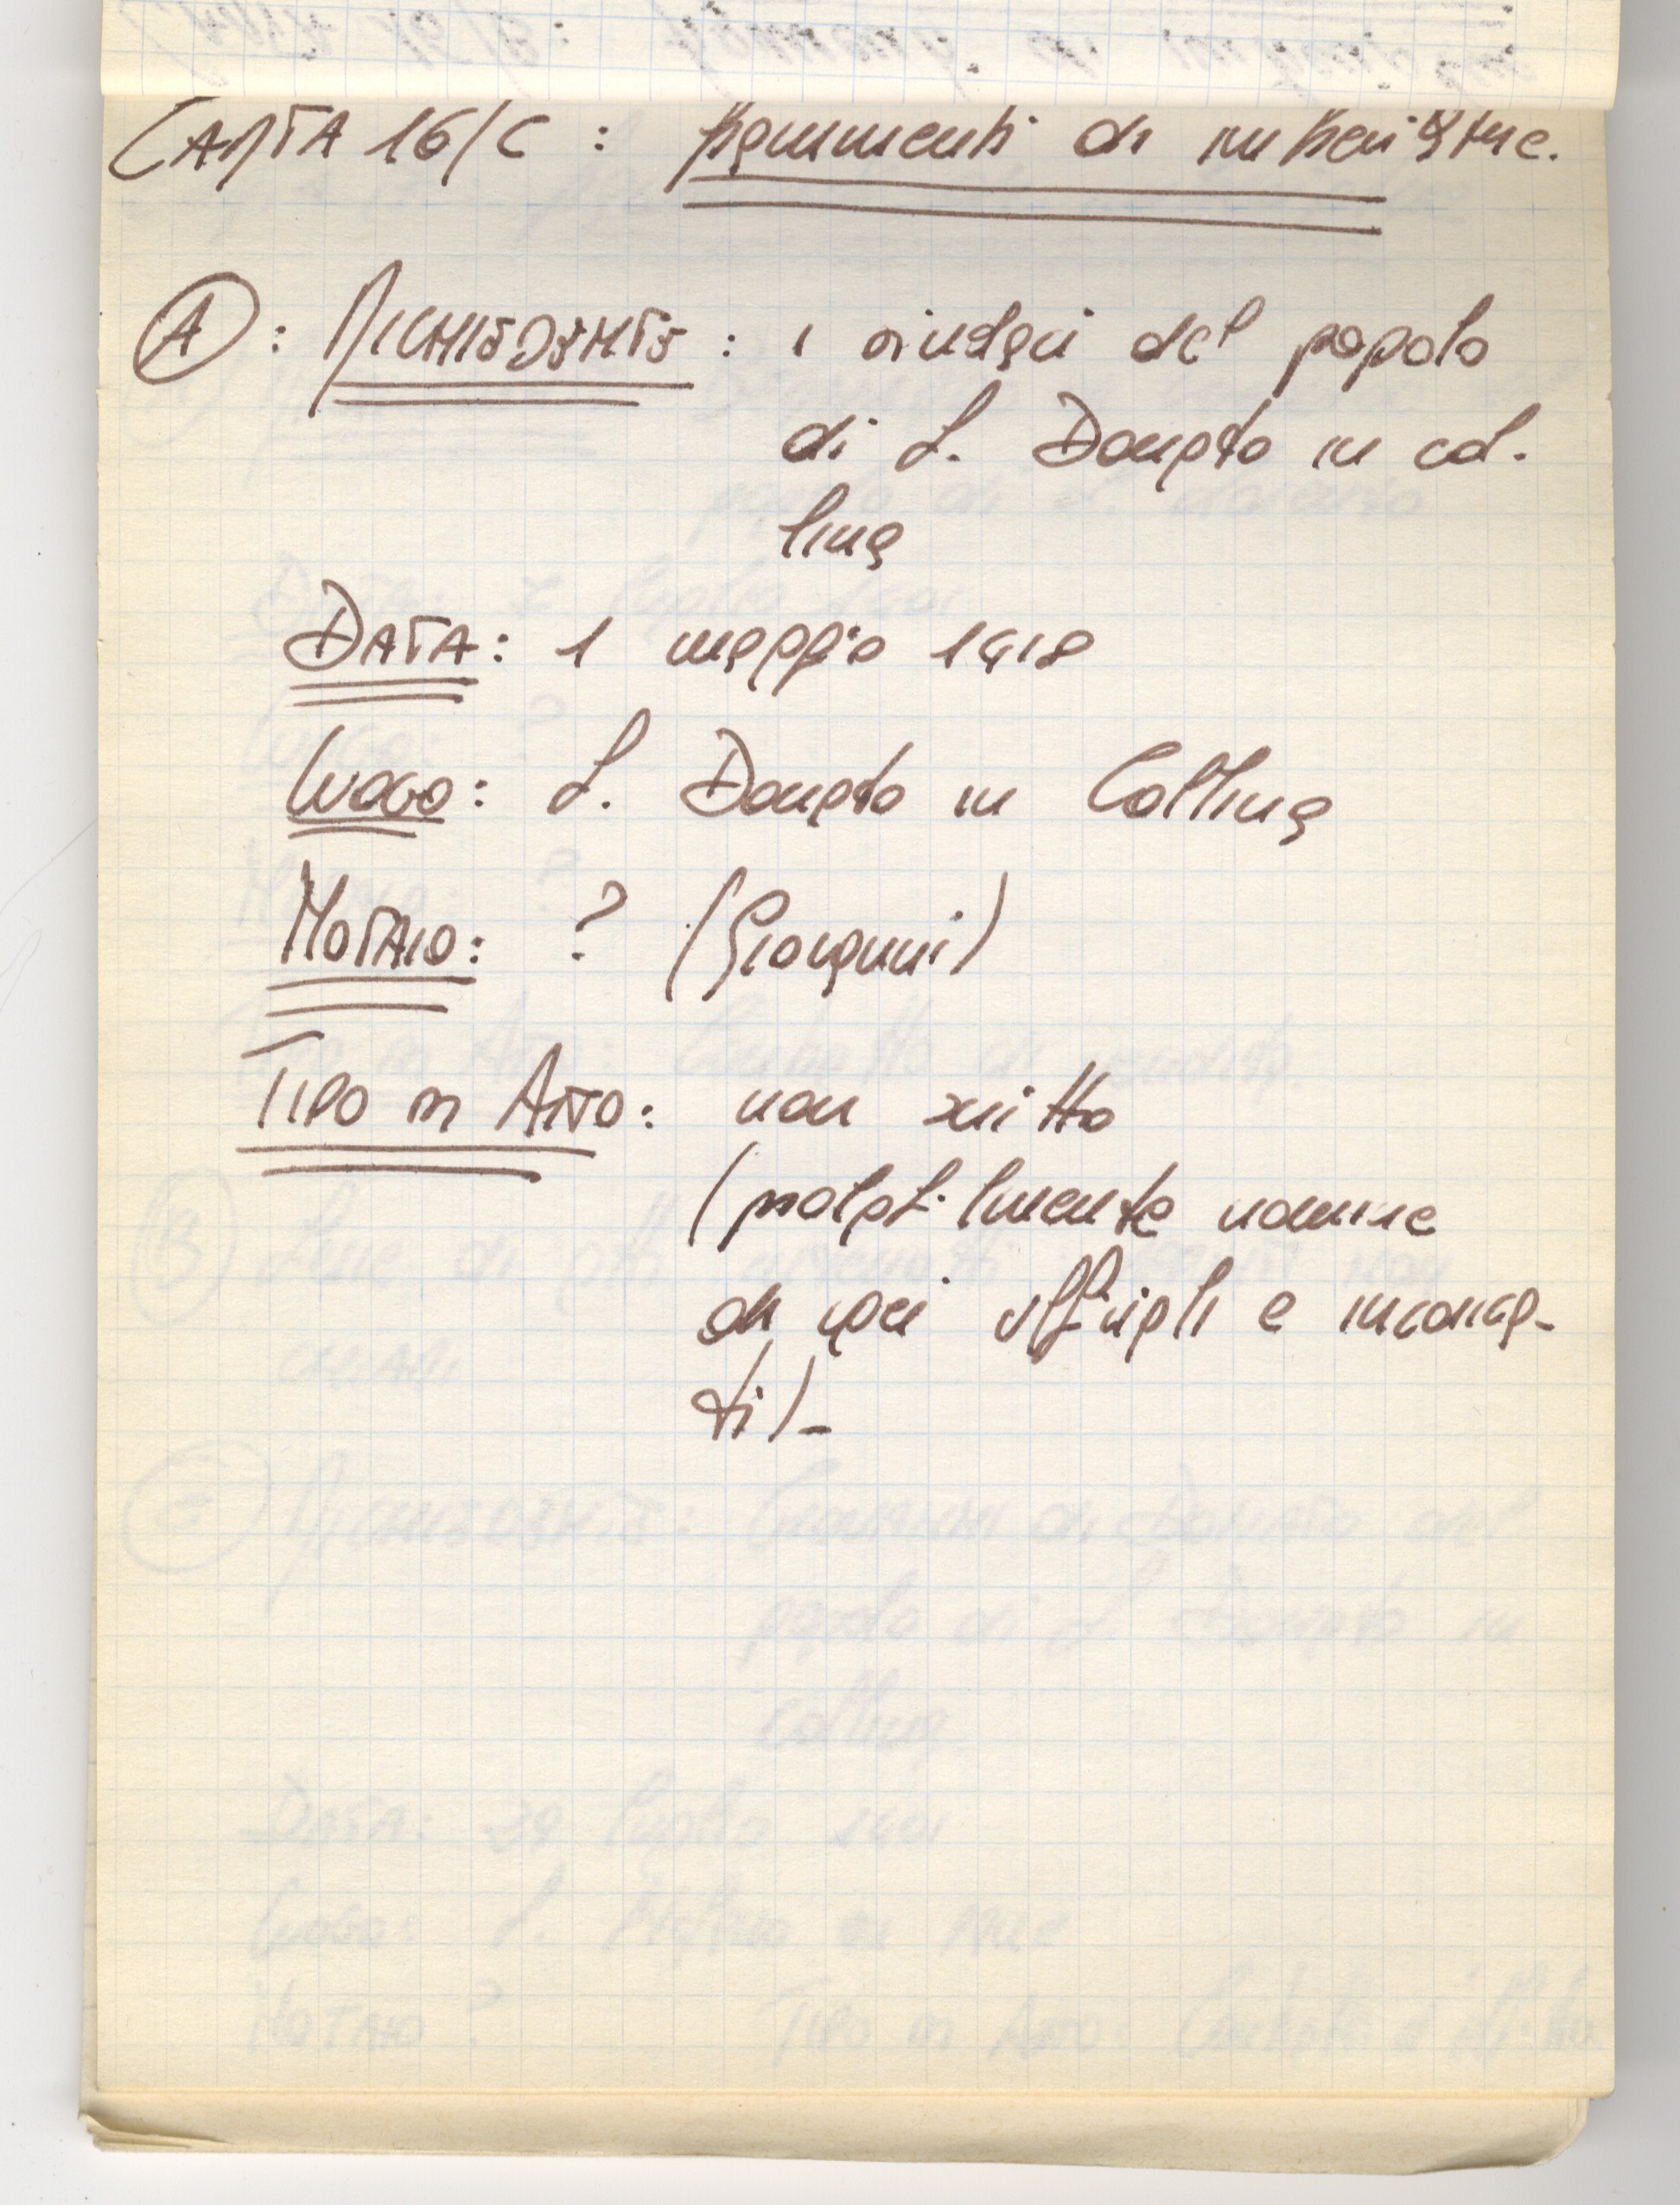 CARTA 16/C : frammenti di imbreviature.
A : RICHIEDENTE : i sindaci del popolo
di S. Donato in col.
lina
DATA : 1 maggio 1418
LUOGO : S. Donato in Collina
NOTAIO : ? (Giovanni)
TIPO DI ATTO : non scritto
(probabilmente nomine
di vari ufficiali e incari-
ti)-